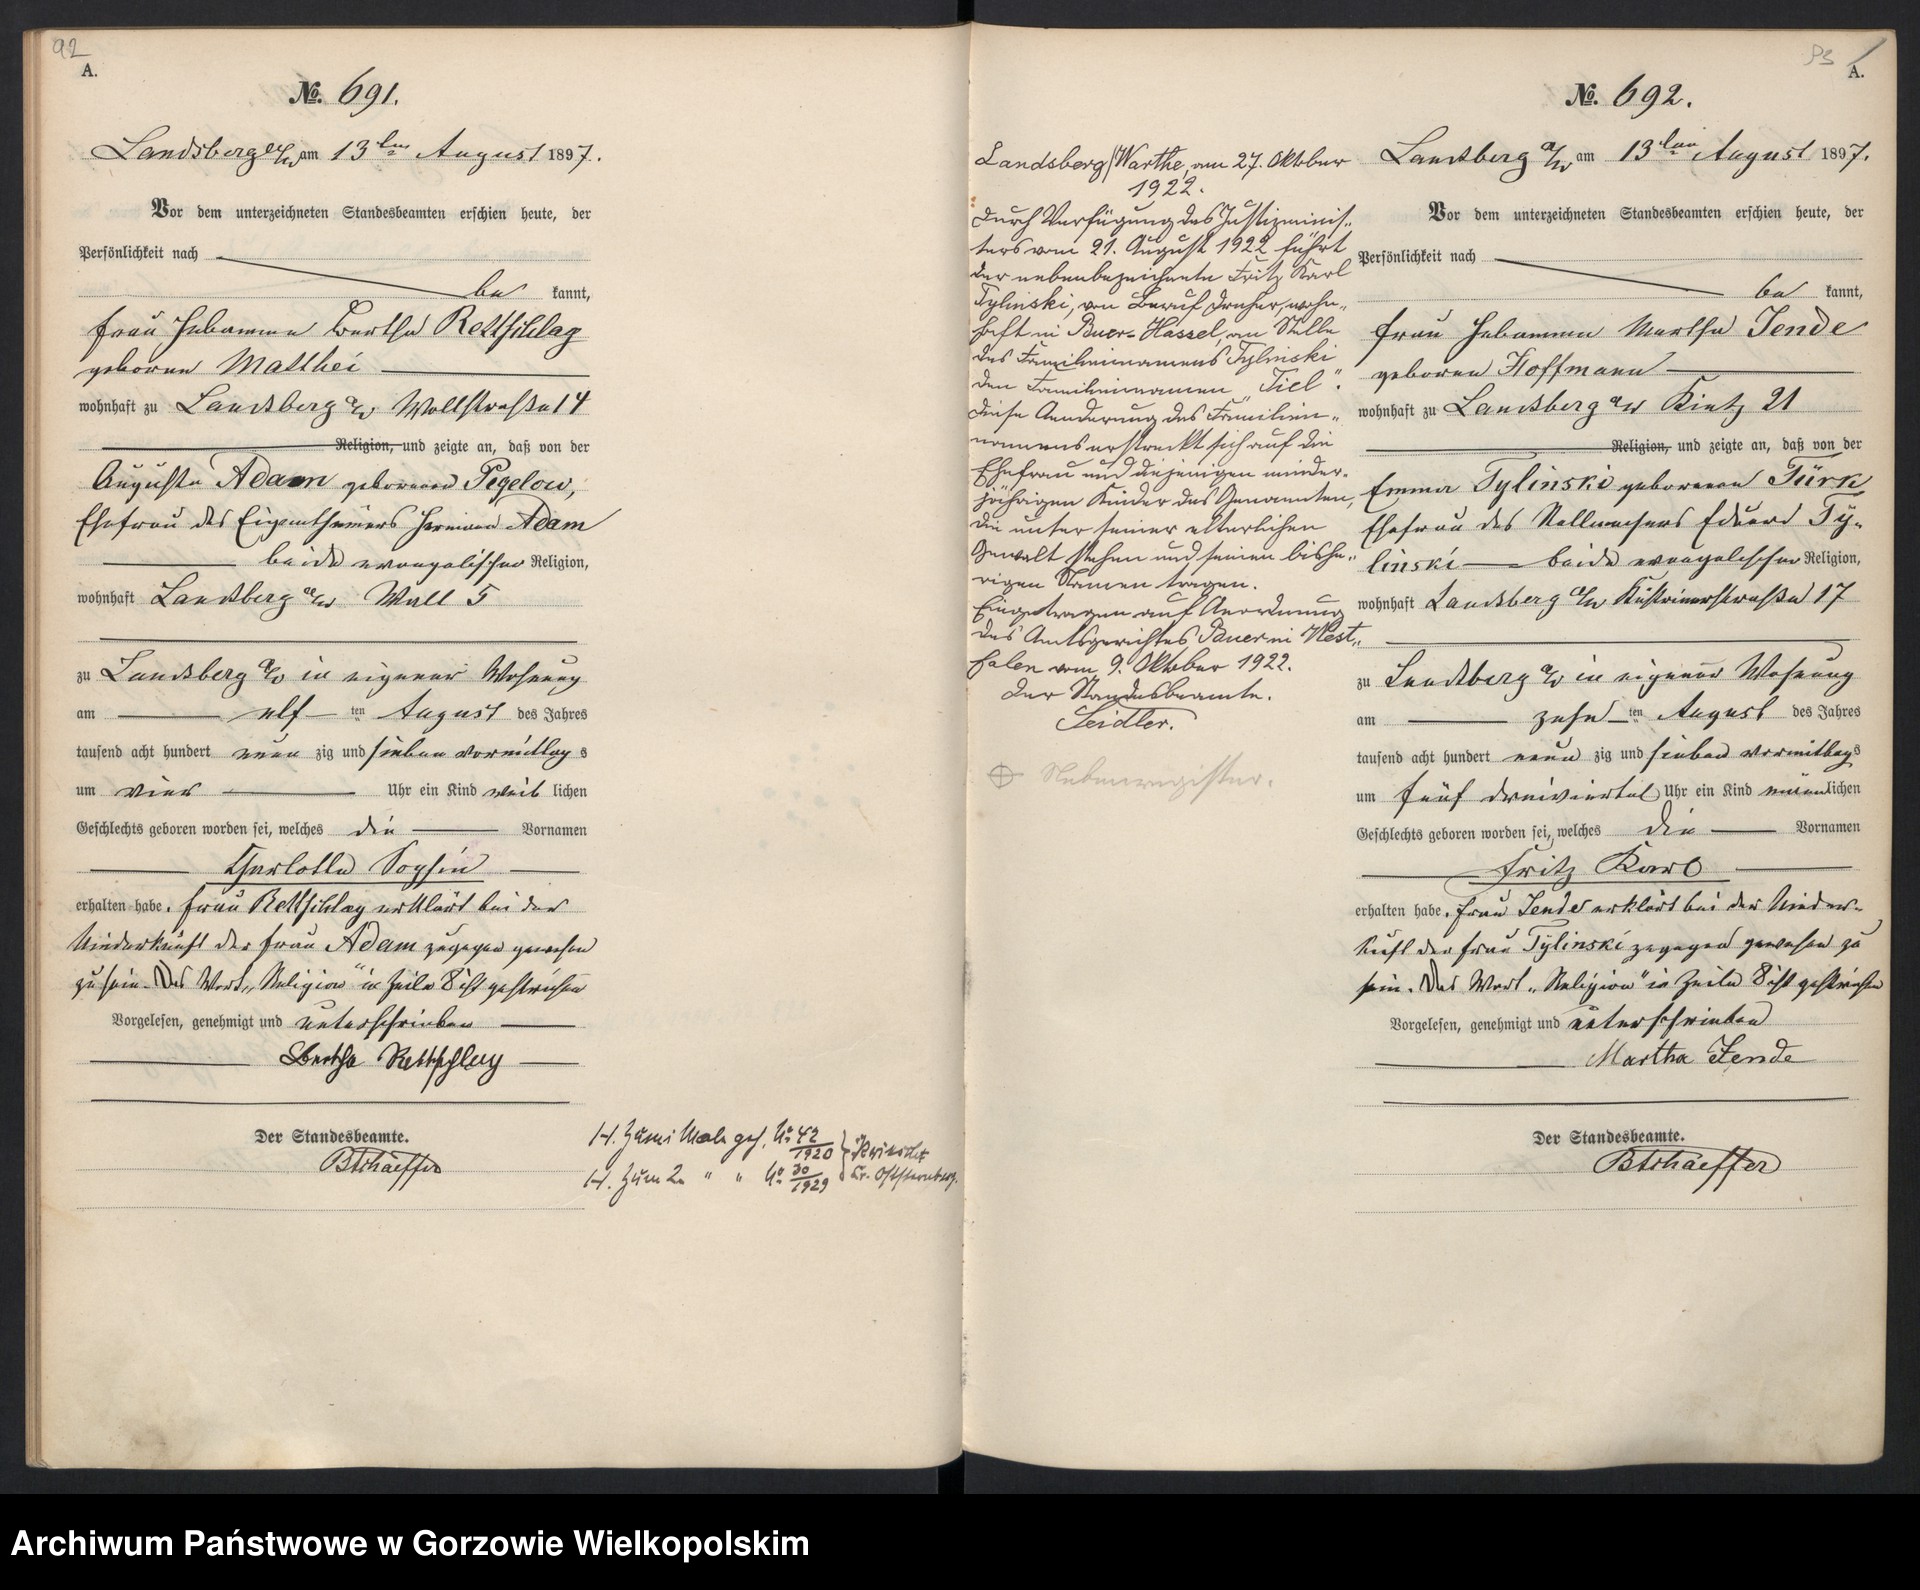 92
A.
No. 691.
Landsberg a/W am 13ten August 1897.
Vor dem unterzeichneten Standesbeamten erschien heute, der
Persönlichkeit nach
be kannt,
Frau Hebamme Bertha Rettschlag
geborene Matthei
wohnhaft zu Landsberg a/W Wallstraße 14
Religion, und zeigte an, daß von der
Auguste Adam geborenen Pegelow,
Ehefrau des Eigenthümers Hermann Adam
beide evangelischer Religion,
wohnhaft Landsberg a/W Wall 5
zu Landsberg a/W in eigener Wohnung
am elf ten August des Jahres
tausend acht hundert neun zig und sieben vormittag s
um vier Uhr ein Kind weib lichen
Geschlechts geboren worden sei, welches die Vornamen
Charlotte Sophie
erhalten habe. Frau Rettschlag erklärt bei der
Niederkunft der Frau Adam zugegen gewesen
zu sein. Das Wort „Religion“ in Zeile 8 ist gestrichen
Vorgelesen, genehmigt und unterschrieben
Bertha Rettschlag
Der Standesbeamte.
BSchaeffer
H. Zum 1 Male geh. No 42/1920
H. Zum 2n " " No 30/1929 Kr. Oststernberg.
93
A.
No. 692.
Landsberg a/W am 13ten August 1897.
Vor dem unterzeichneten Standesbeamten erschien heute, der
Persönlichkeit nach
be kannt,
Frau Hebamme Martha Jende
geborene Hoffmann
wohnhaft zu Landsberg a/W Kietz 21
Religion, und zeigte an, daß von der
Emma Tylinski geborenen Türk
Ehefrau des Stellmachers Eduard Ty-
linski beide evangelischer Religion,
wohnhaft Landsberg a/W Küstrinerstraße 17
zu Landsberg a/W in eigener Wohnung
am zehn ten August des Jahres
tausend acht hundert neun zig und sieben vormittags
um fünf dreiviertel Uhr ein Kind männlichen
Geschlechts geboren worden sei, welches die Vornamen
Fritz Karl
erhalten habe. Frau Jende erklärt bei der Nieder-
kuft der Frau Tylinski zugegen gewesen zu
sein. Das Wort „Religion“ in Zeile 8 ist gestrichen
Vorgelesen, genehmigt und unterschrieben
Martha Jende
Der Standesbeamte.
BSchaeffer
Landsberg/Warthe, am 27. Oktober
1922.
Durch Verfügung des Justizminis-
ters vom 21. August 1922 führt
der nebenbezeichnete Fritz Karl
Tylinski, von Beruf Dreher, wohn-
haft in Buer-Hassel, an Stelle
des Familiennamens Tylinski
den Familiennamen „Tiel“.
Diese Aenderung des Familien-
namens erstreckt sich auf die
Ehefrau und diejenigen minder-
jährigen Kinder des Genannten,
die unter seiner elterlichen
Gewalt stehen und seinen bishe-
rigen Namen tragen.
Eingetragen auf Anordnung
des Amtsgerichtes Buer in West-
falen vom 9. Oktober 1922.
Der Standesbeamte.
Seidler.
Nebenregister.
Archiwum Państwowe w Gorzowie Wielkopolskim